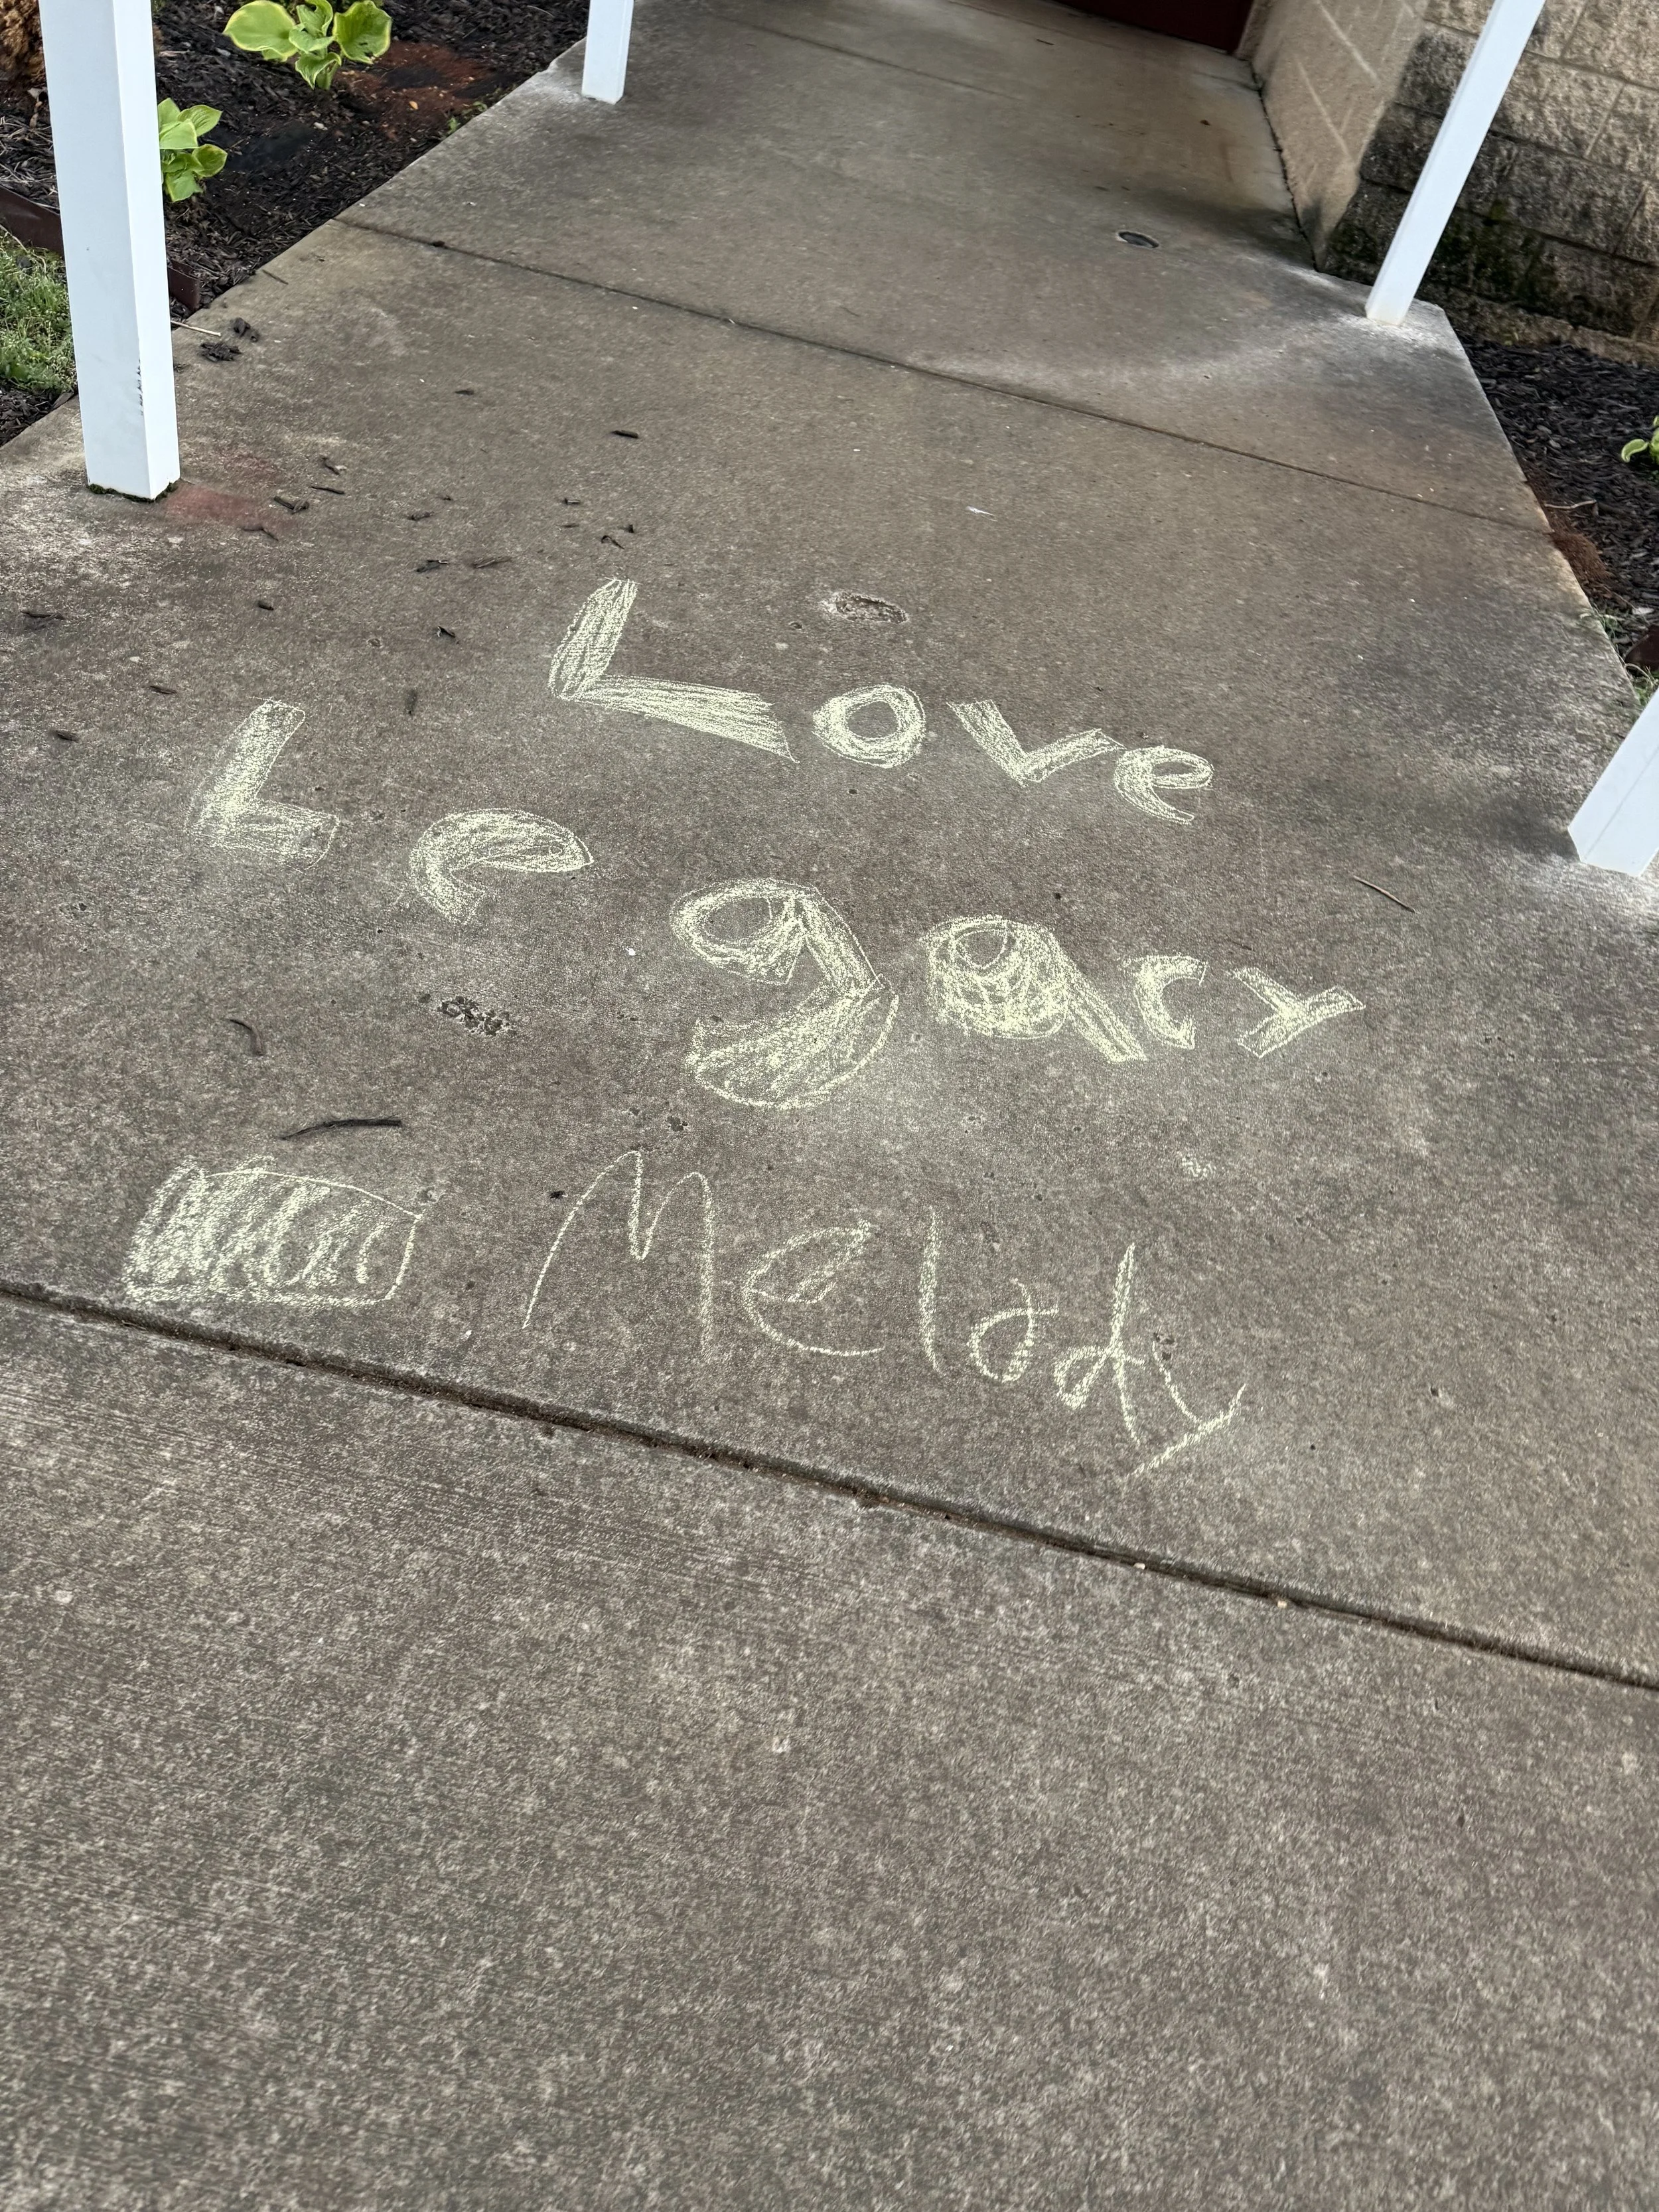 Love
Legacy
Melody